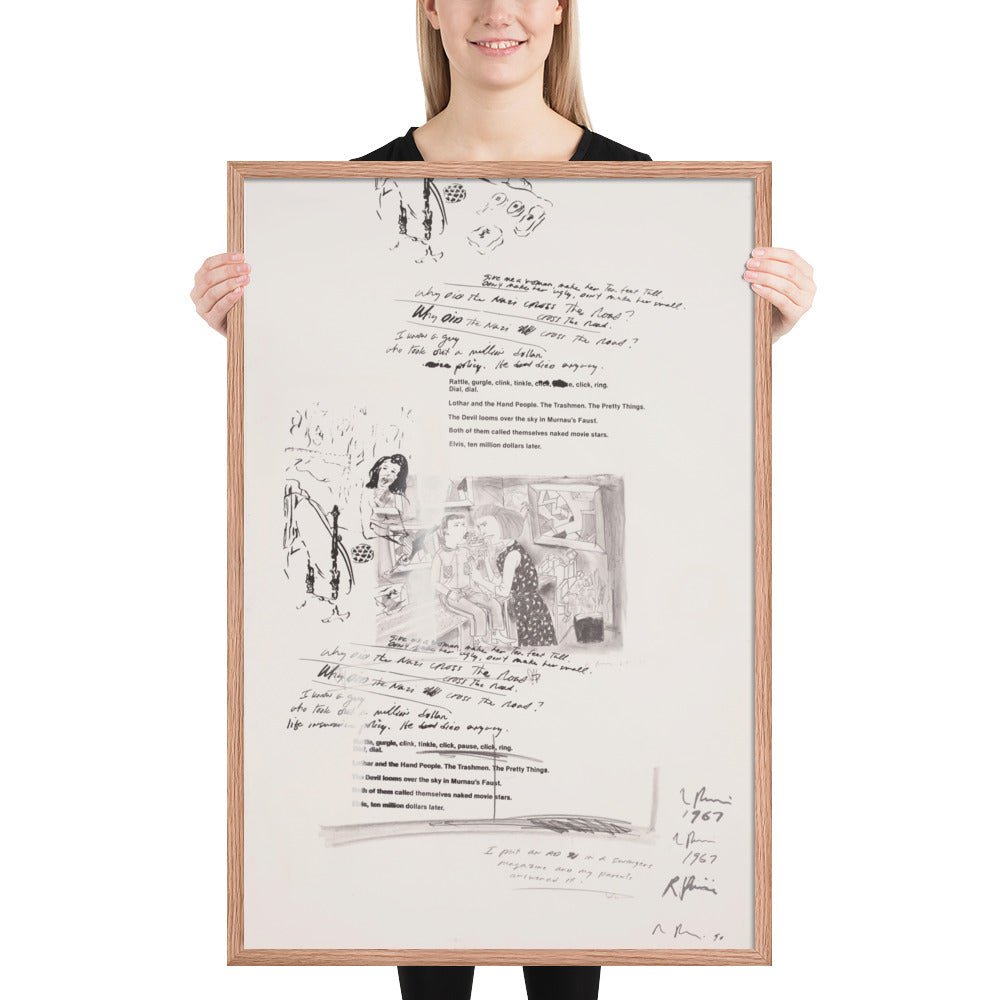 Give me a woman, make her Ten feet Tall.
Don't make her ugly, Don't make her small.
Why DID the NAZI CROSS The Road?
CROSS The Road.
Why DID The Nazi CROSS The Road?
I knew a guy
who took out a million dollar
policy. He died anyway.
Rattle, gurgle, clink, tinkle, click, click, ring.
Dial, dial.
Lothar and the Hand People. The Trashmen. The Pretty Things.
The Devil looms over the sky in Murnau's Faust.
Both of them called themselves naked movie stars.
Elvis, ten million dollars later.
Give me a woman, make her Ten feet Tall.
Don't make her ugly, Don't make her small.
Why DID the Nazi CROSS The Road?
CROSS The Road.
Why DID The Nazi CROSS The Road?
I knew a guy
who took out a million dollar
life insurance policy. He died anyway.
Rattle, gurgle, clink, tinkle, click, pause, click, ring.
Dial, dial.
Lothar and the Hand People. The Trashmen. The Pretty Things.
The Devil looms over the sky in Murnau's Faust.
Both of them called themselves naked movie stars.
Elvis, ten million dollars later.
1967
1967
I put an AD in a swingers
magazine and my parents
answered it.